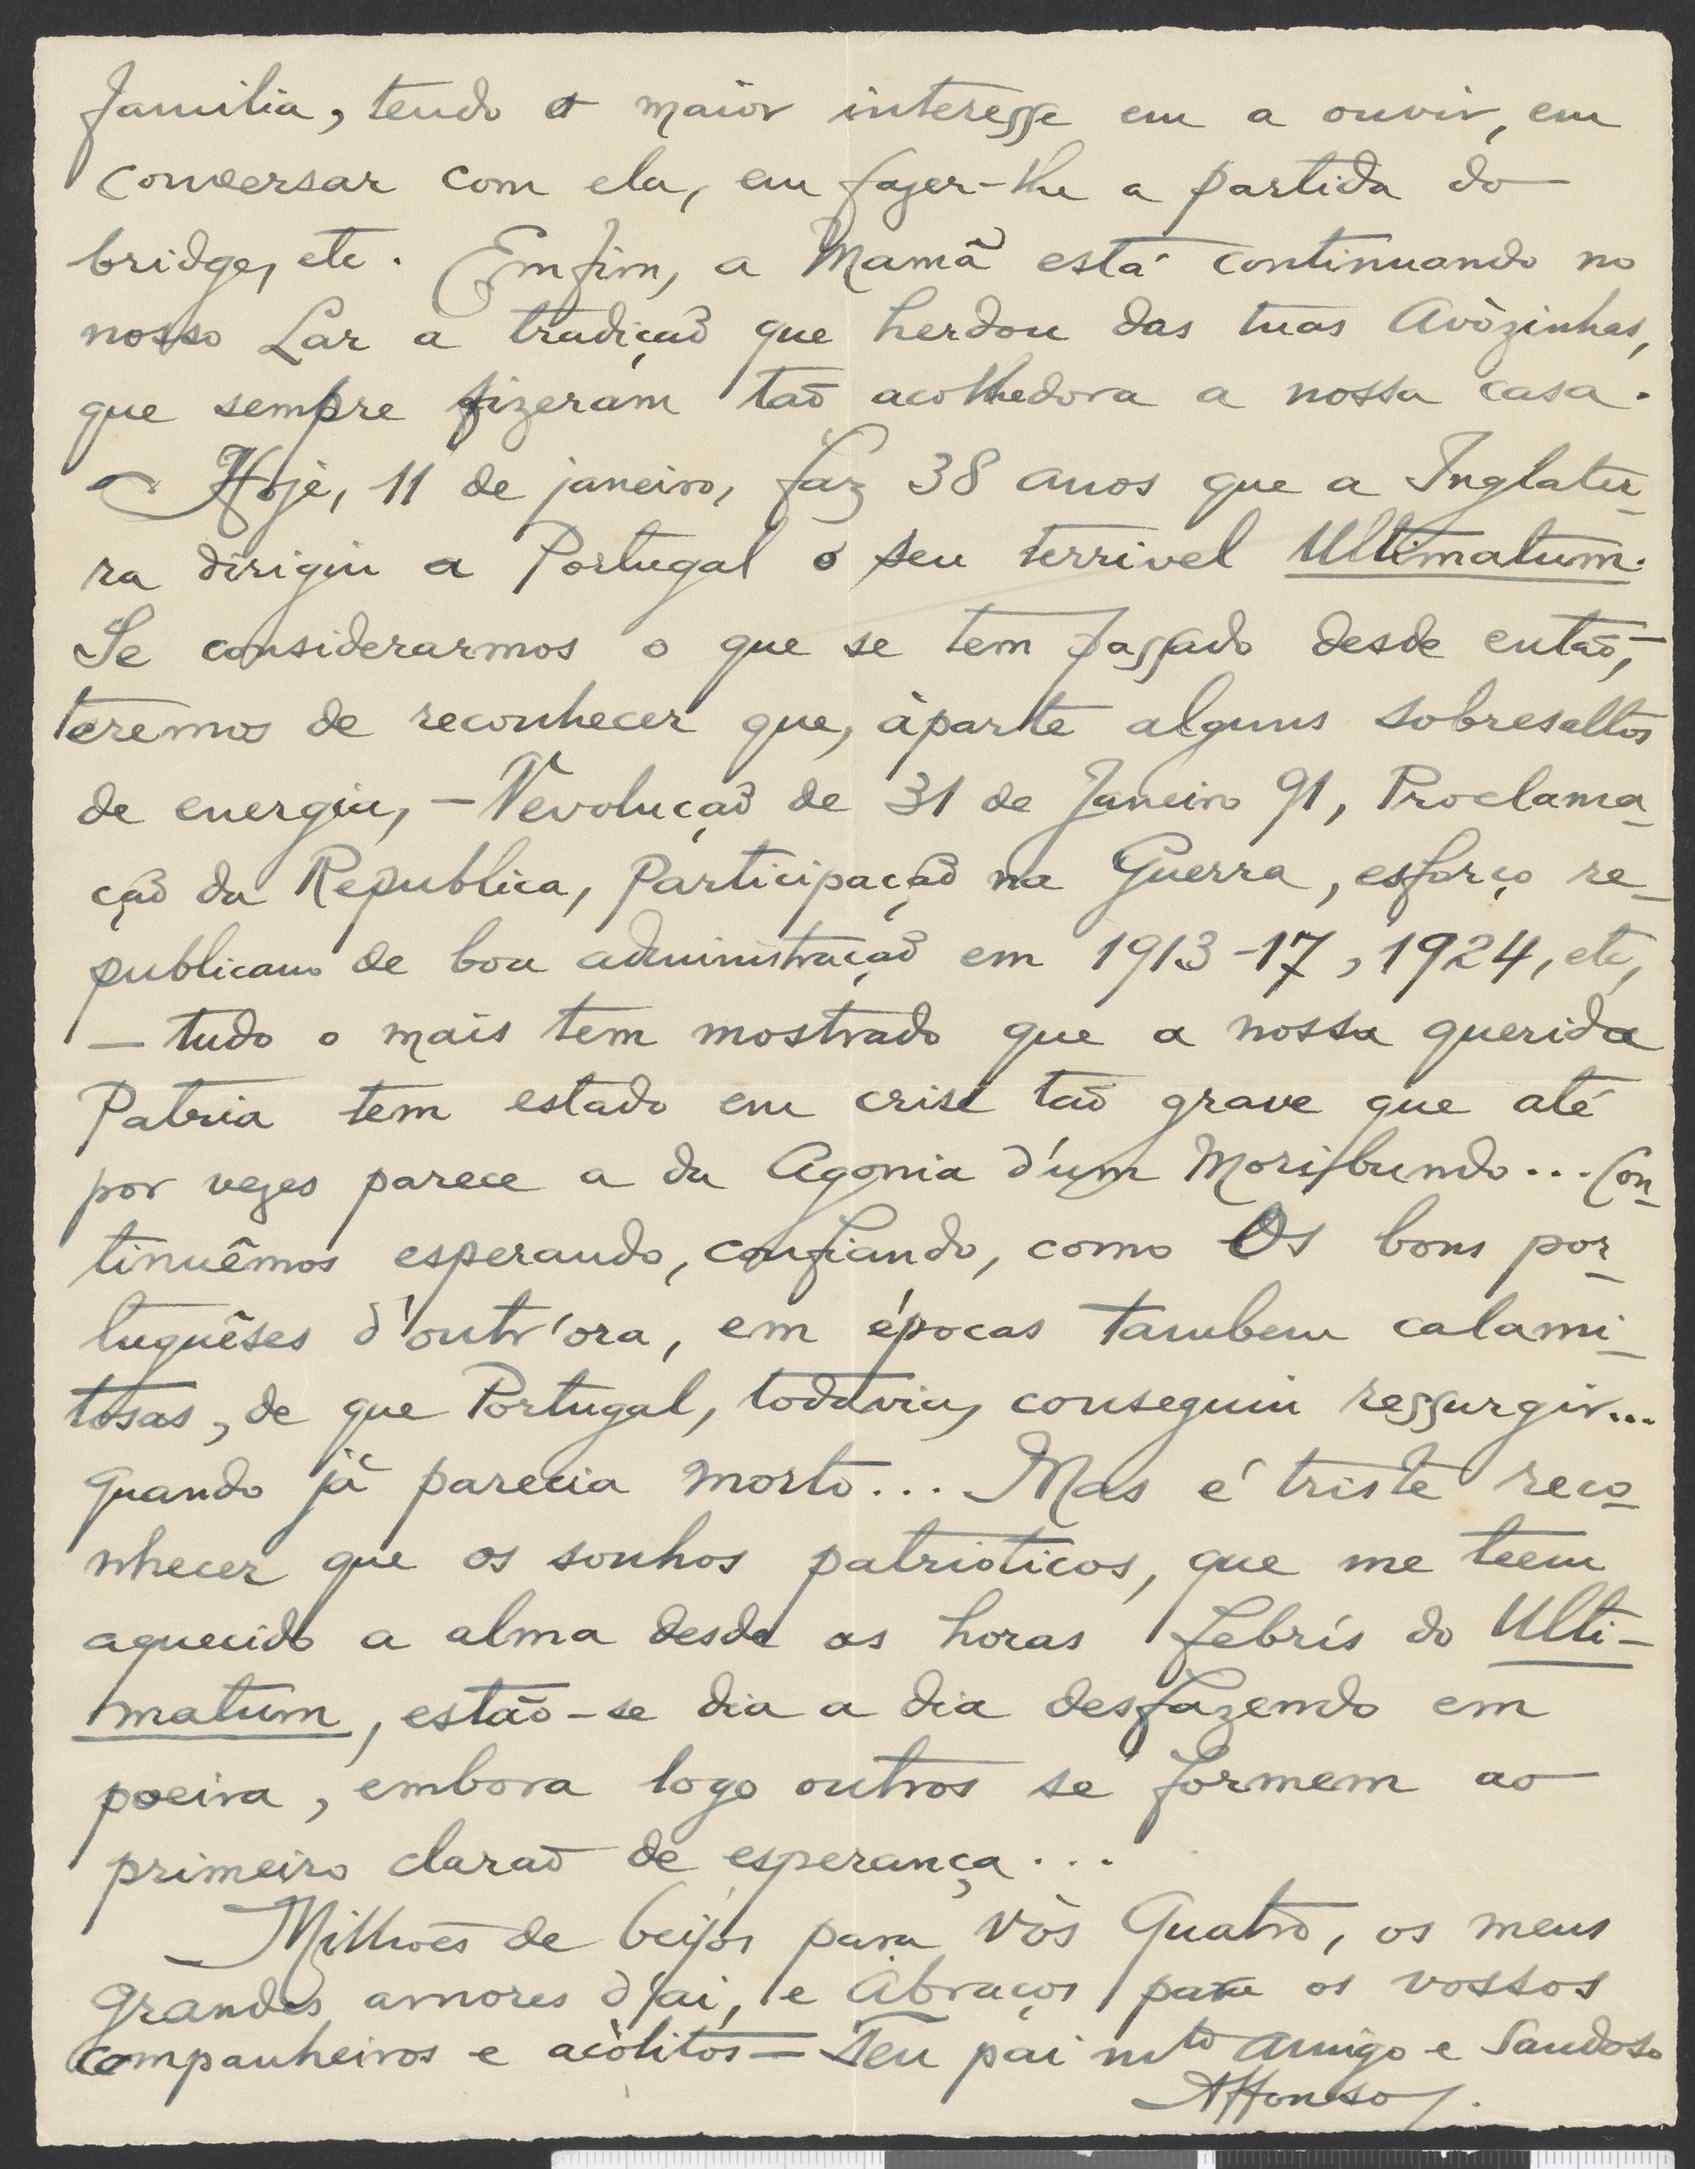 familia, tendo o maior interesse em a ouvir, em
conversar com ela, em fazer-lhe a partida do
bridge, etc. Emfim, a Mamã está continuando no
nosso Lar a tradição que herdou das tuas Avòzinhas,
que sempre fizeram tão acolhedora a nossa casa.
Hoje, 11 de janeiro, faz 38 anos que a Inglater-
ra dirigiu a Portugal o seu terrivel Ultimatum.
Se considerarmos o que se tem passado desde então,
teremos de reconhecer que, àparte alguns sobresaltos
de energia, – Revolução de 31 de Janeiro 91, Proclama-
ção da Republica, Participação na Guerra, esforço re-
publicano de boa administração em 1913-17, 1924, etc,
– tudo o mais tem mostrado que a nossa querida
Patria tem estado em crise tão grave que até
por vezes parece a da Agonia d'um Moribundo... Con-
tinuêmos esperando, confiando, como Os bons por-
tuguêses d'outr'ora, em épocas tambem calami-
tosas, de que Portugal, todavia, conseguiu ressurgir...
quando já parecia morto... Mas é triste reco-
nhecer que os sonhos patrioticos, que me teem
aquecido a alma desde as horas febrís do Ulti-
matum, estão-se dia a dia desfazendo em
poeira, embora logo outros se formem ao
primeiro clarão de esperança...
Milhões de beijos para vòs Quatro, os meus
grandes amores d'aí, e Abraços para os vossos
companheiros e acòlitos = Teu pai mto amigo e Saudoso
Affonso